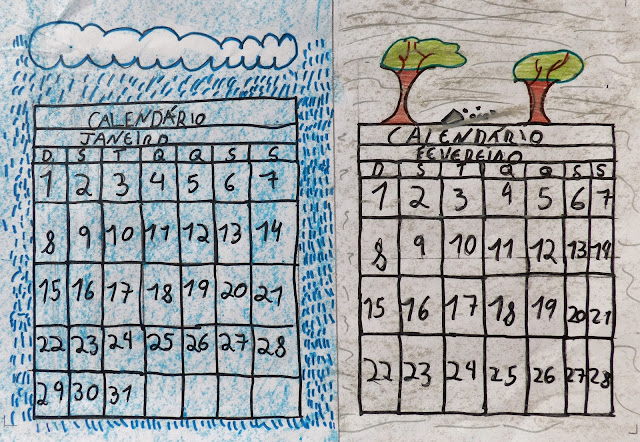 CALENDÁRIO
JANEIRO
D S T Q Q S S
1 2 3 4 5 6 7
8 9 10 11 12 13 14
15 16 17 18 19 20 21
22 23 24 25 26 27 28
29 30 31
CALENDÁRIO
FEVEREIRO
D S T Q Q S S
1 2 3 4 5 6 7
8 9 10 11 12 13 14
15 16 17 18 19 20 21
22 23 24 25 26 27 28